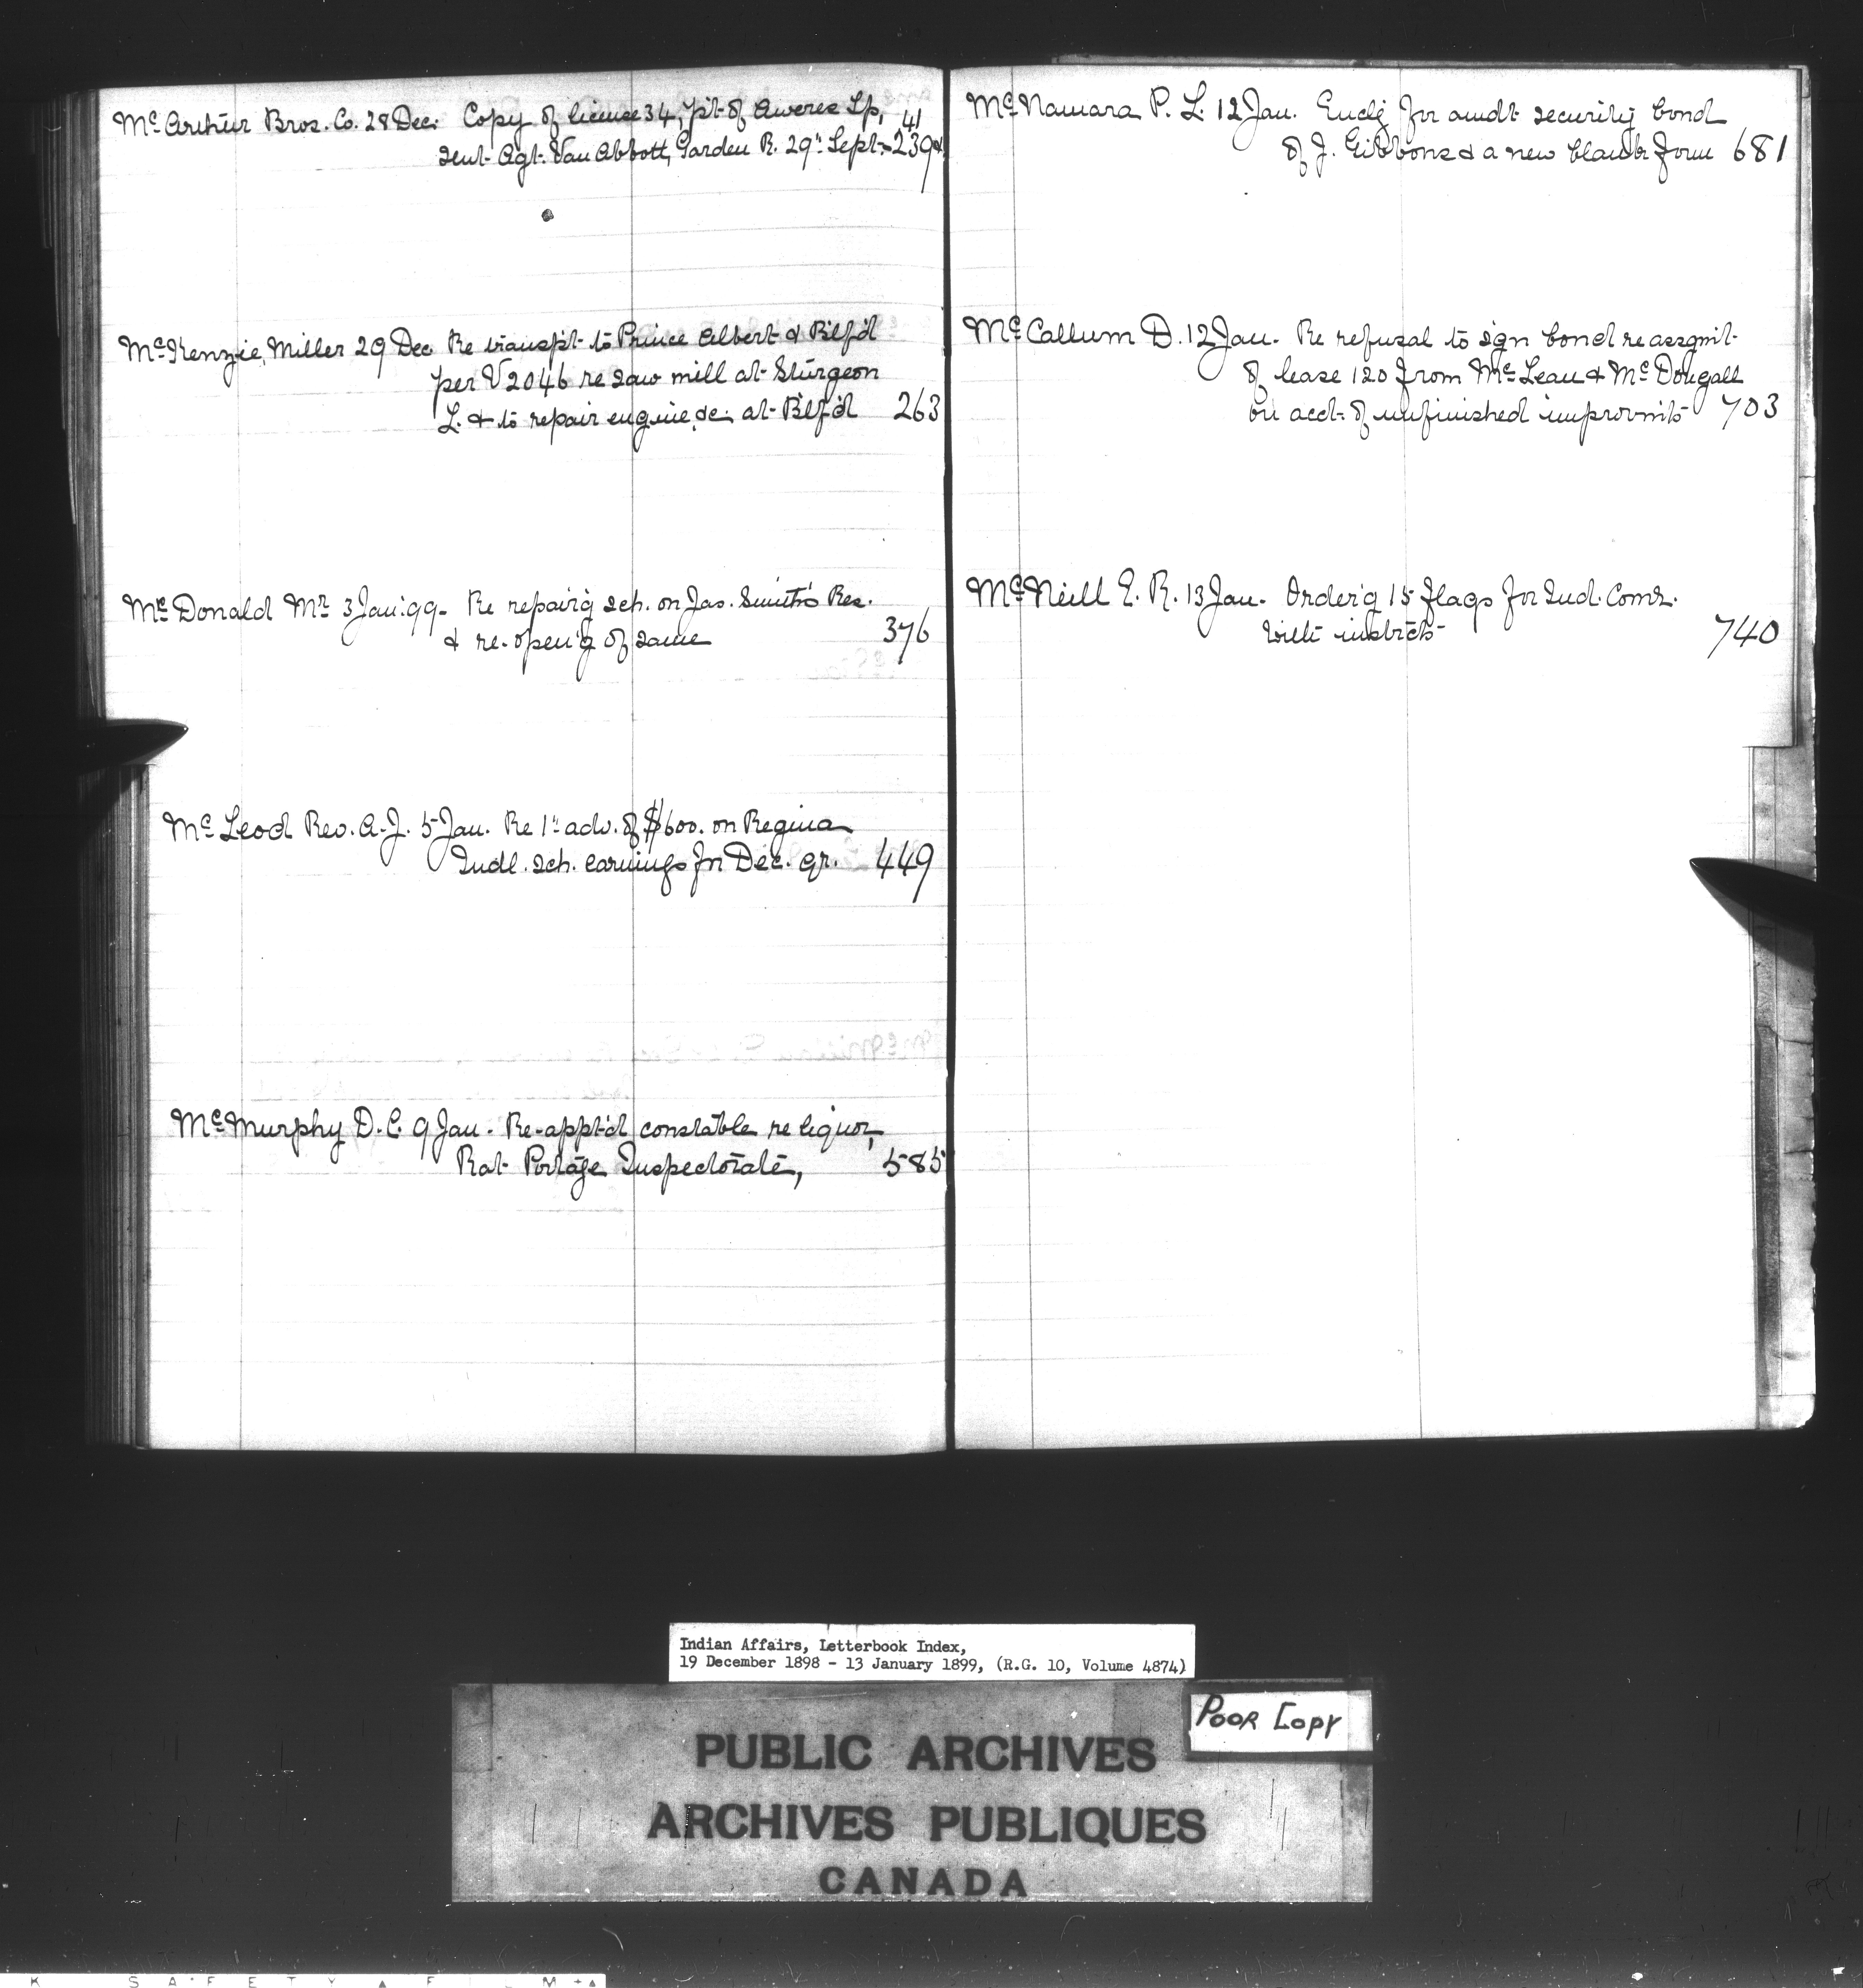 Mc Arthur Bros. Co. 28 Dec. Copy of license 34, pt. of Aweres Tp, 41
sent Agt. Van Abbott, Garden R. 29" Sept. 239
Mc Kenzie, Miller 29 Dec. Re transp't to Prince Albert & B'lf'd
per V2046 re saw mill at Sturgeon
L. & to repair engine &c. at B'lf'd 263
Mc Donald Mr 3 Jan: 99. Re repair'g sch. on Jas. Smith's Res.
& re-open'g of same 376
Mc Leod Rev. A. J. 5 Jan. Re 1" adv. of $600. on Regina
Indl. sch. earnings for Dec. qr. 449
Mc Murphy D. C. 9 Jan. Re-appt'd constable re liquor,
Rat Portage Inspectorate, 585
Mc Namara P. L. 12 Jan. Encl'g for amdt security bond
of J. Gibbons & a new blank form 681
Mc Callum D. 12 Jan. Re refusal to sign bond re assgmt.
of lease 120 from Mc Lean & Mc Dougall
on acct. of unfinished improvmts 703
Mc Neill E. R. 13 Jan. Order'g 15 flags for Ind. Comr.
with instrcts 740
Indian Affairs, Letterbook Index,
19 December 1898 - 13 January 1899, (R.G. 10, Volume 4874)
POOR COPY
PUBLIC ARCHIVES
ARCHIVES PUBLIQUES
CANADA
K SAFETY FILM